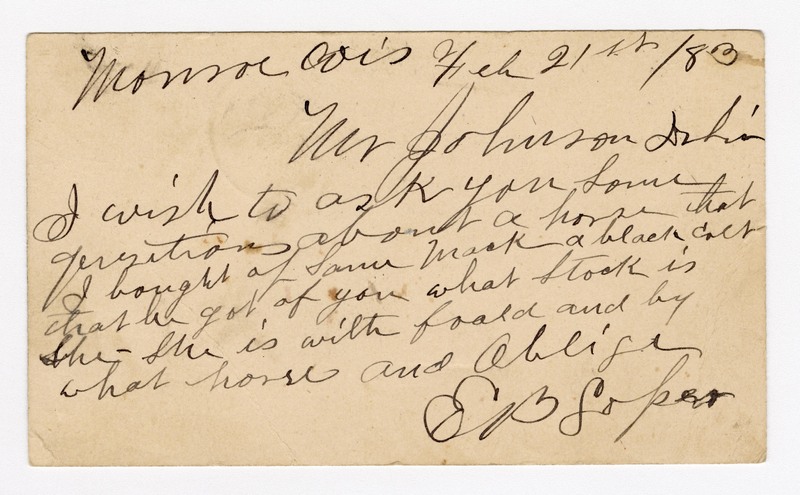 Monroe Wis Feb 21st /83
Mr Johnson Dr Sir
I wish to ask you some
quesitions about a horse that
I bought of Sam Mack a black colt
that he got of you what Stock is
She - She is with foald and by
what horse and Oblige
E B Soper